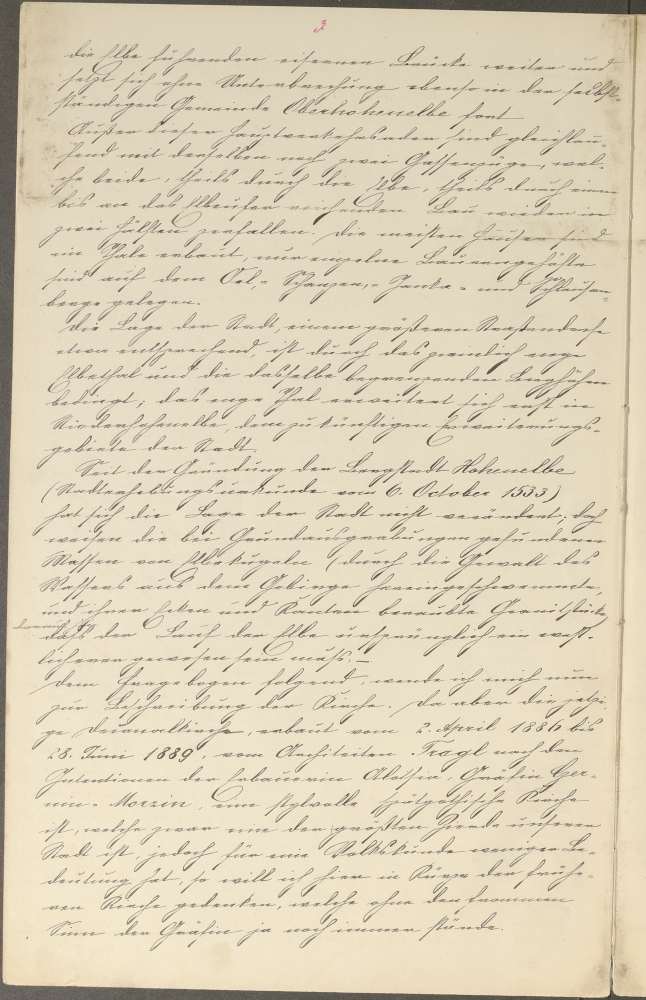 3
die Elbe führenden eisernen Brücke weiter und
setzt sich ohne Unterbrechung ebenso in der selbst-
ständigen Gemeinde Oberhohenelbe fort
Außer dieser Hauptverkehrsader sind gleichlau-
fend mit derselben noch zwei Gassenzüge, wel-
che beide, theils durch die Elbe, theils durch einen
bis an das Elbeufer reichenden Bau wieder in
zwei Hälften zerfallen. Die meisten Häuser sind
im Thale erbaut, nur einzelne Bauerngehöfte
sind auf dem Oel-, Schanzen-, Janka- und Schleusen-
berge gelegen.
Die Lage der Stadt, einem größeren Straßendorfe
etwa entsprechend, ist durch das ziemlich enge
Elbethal und die dasselbe begrenzenden Berghöhen
bedingt; das enge Thal erweitert sich erst in
Niederhohenelbe, dem zukünftigen Erweiterungs-
gebiete der Stadt.
Seit der Gründung der Bergstadt Hohenelbe
(Stadterhebungsurkunde vom 6. October 1533)
hat sich die Lage der Stadt nicht verändert; doch
weisen die bei Grundausgrabungen gefundenen
Massen von Elbekugeln (durch die Gewalt des
Wassers aus dem Gebirge hereingeschwemmte,
und ihrer Ecken und Kanten beraubte Granitstücke)
darauf hin
daß der Lauf der Elbe ursprünglich ein west-
licherer gewesen sein muß. –
Dem Fragebogen folgend, wende ich mich nun
zur Beschreibung der Kirche. Da aber die jetzi-
ge Decanalkirche, erbaut vom 2. April 1886 bis
28. Juni 1889, vom Architekten Tragl nach den
Intentionen der Erbauerin Aloisia, Gräfin Czer-
nin-Morzin, eine stylvolle spätgothische Kirche
ist, welche zwar eine der größten Zierde unserer
Stadt ist, jedoch für eine Volkskunde weniger Be-
deutung hat, so will ich hier in Kürze der frühe-
ren Kirche gedenken, welche ohne den frommen
Sinn der Gräfin ja noch immer stünde.